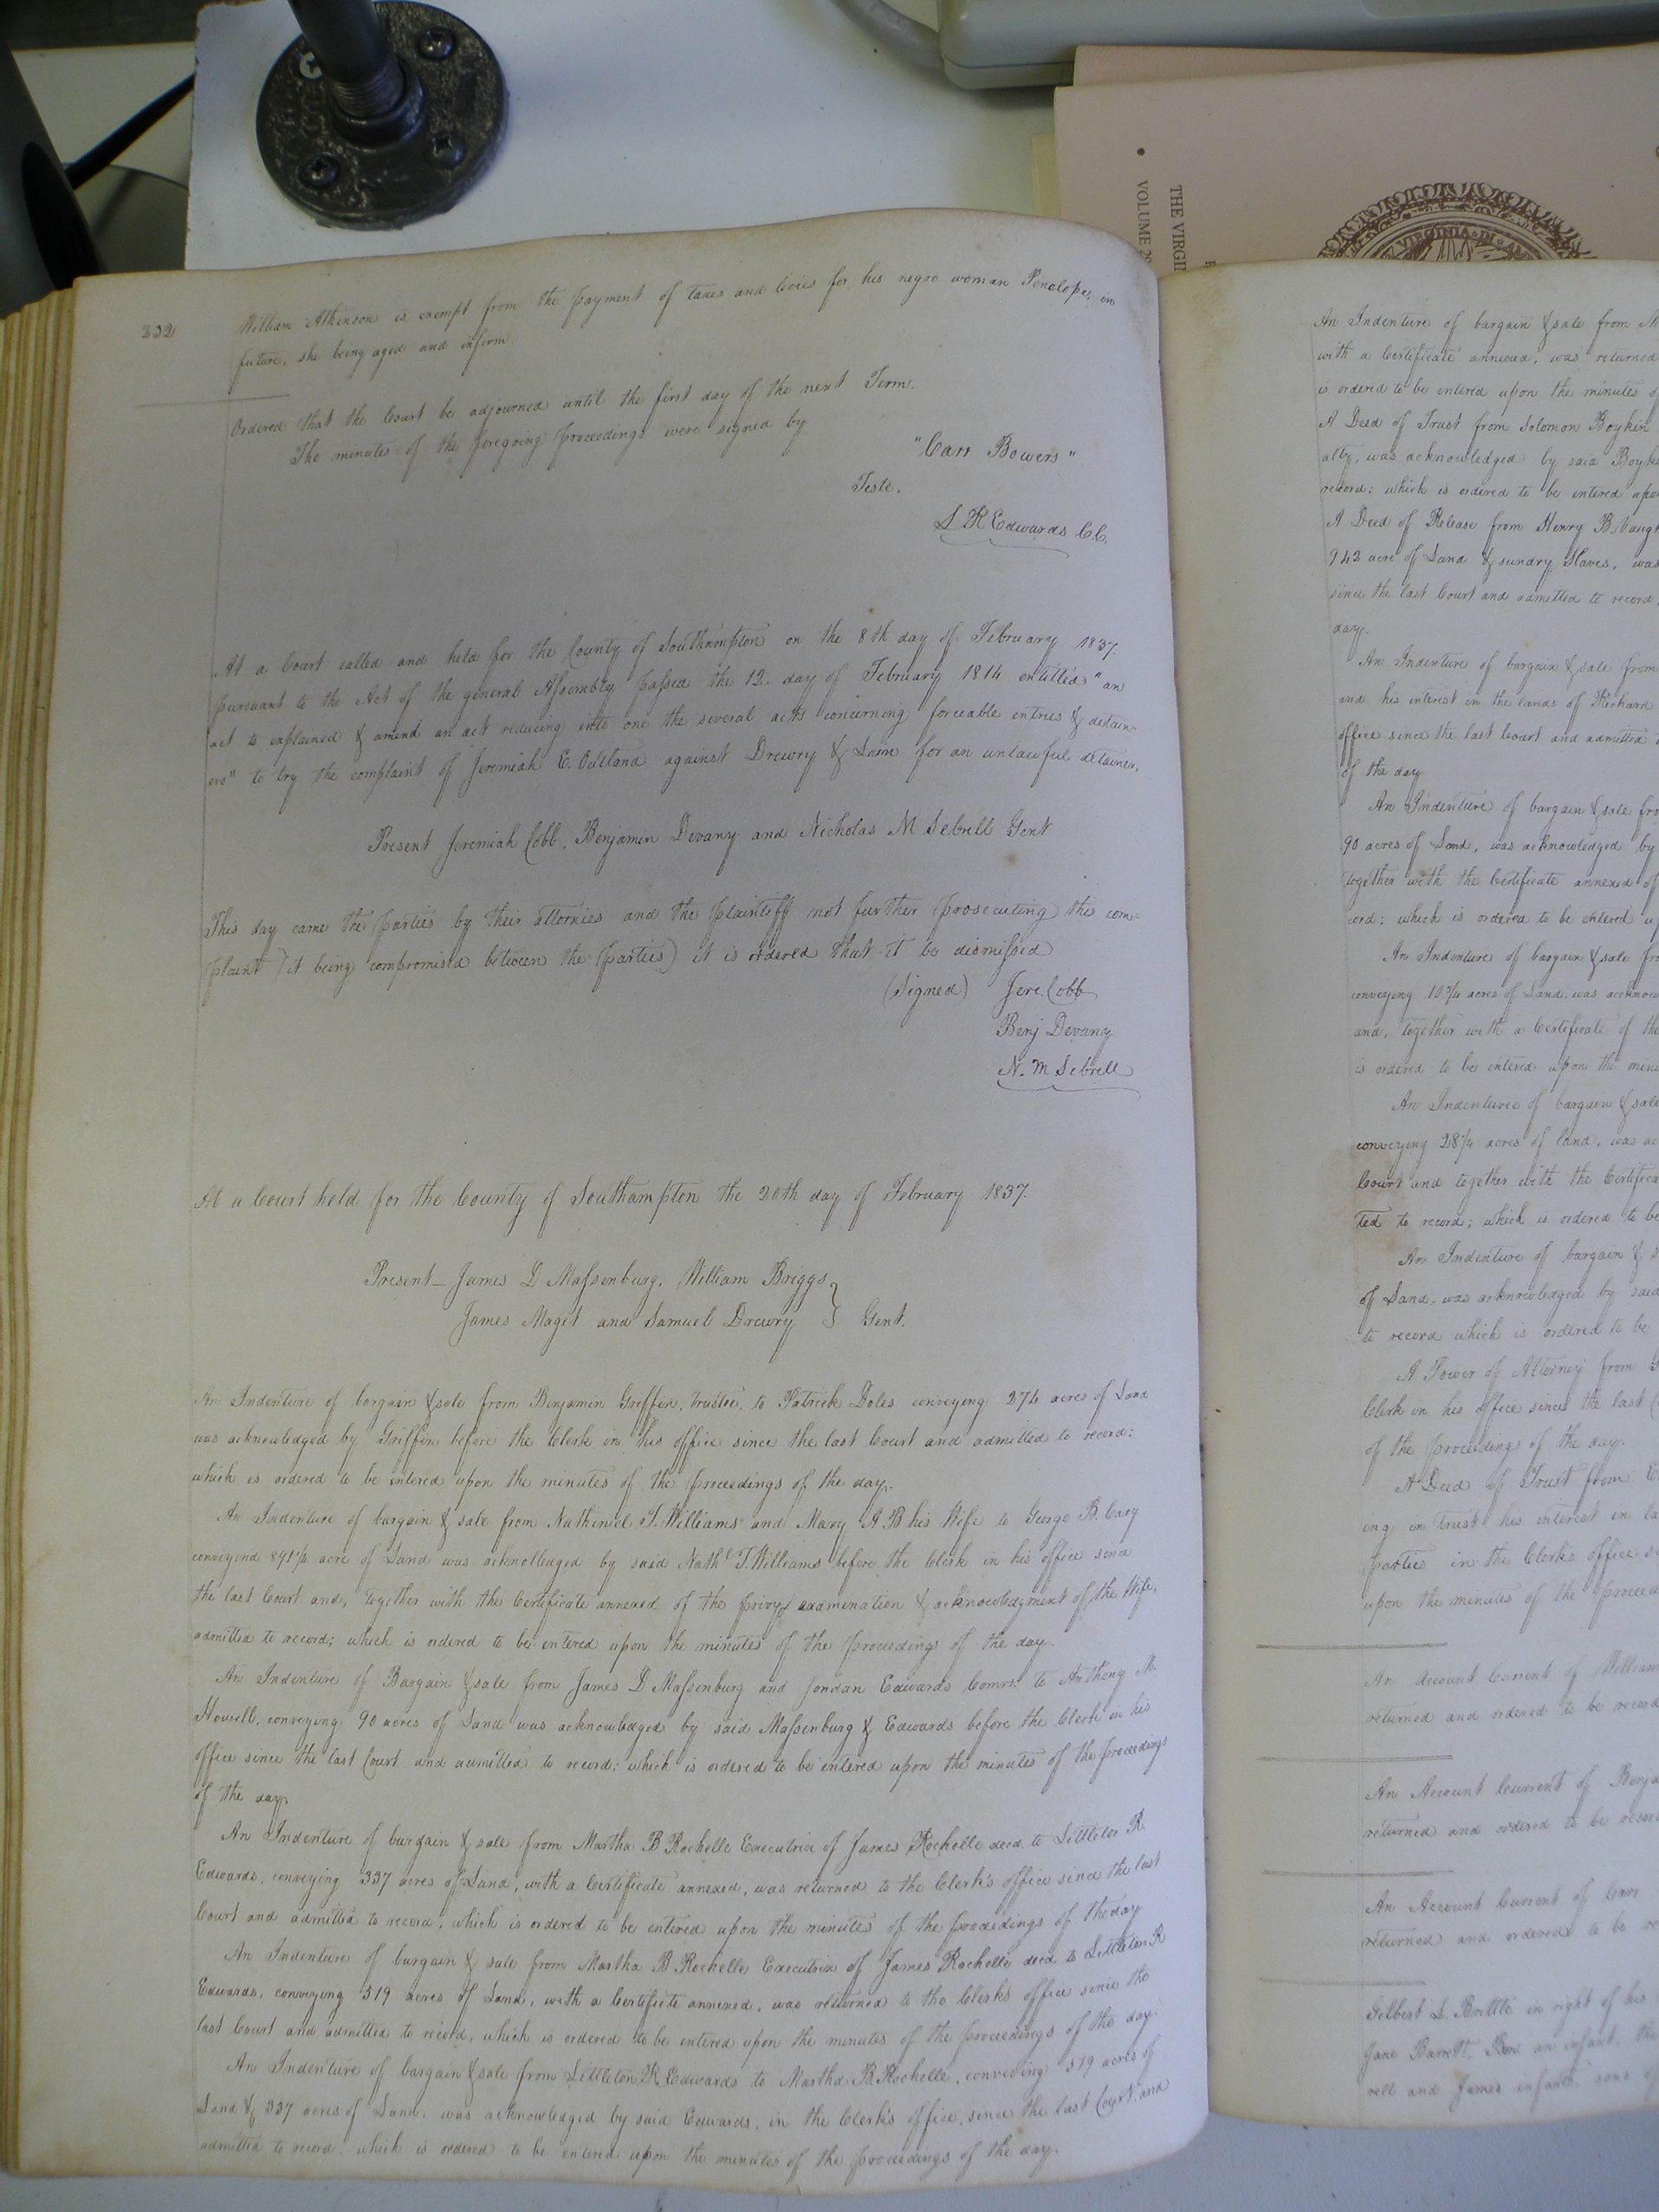 332
William Atkinson is exempt from the payment of taxes and levies for his negro woman Penelope, in
future, she being aged and infirm.
Ordered that the Court be adjourned until the first day of the next Term.
The minutes of the foregoing proceedings were signed by
"Carr Bowers"
Teste.
L R Edwards C.C.
At a Court called and held for the County of Southampton on the 8th day of February 1837.
pursuant to the Act of the general Assembly passed the 12. day of February 1814 entitled "an
act to explained & amend an act reducing into one the several acts concerning forceable entries & detain-
ers" to try the complaint of Jeremiah E. Outland against Drewry & for an unlawful detainer.
Present Jeremiah Cobb, Benjamin Devany and Nicholas M Sebrell Gent
This day came the parties by their attornies and the plaintiff not further prosecuting this com-
plaint (it being compromised between the parties) it is ordered that it be dismissed
(Signed) Jere. Cobb
Benj Devany
N. M Sebrell
At a Court held for the County of Southampton the 20th day of February 1837.
Present— James D Massenburg, William Briggs
James Maget and Samuel Drewry } Gent.
An Indenture of bargain & sale from Benjamin Griffin, trustee, to Patrick Doles conveying 274 acres of Land
was acknowledged by Griffin before the Clerk in his office since the last Court and admitted to record:
which is ordered to be entered upon the minutes of the proceedings of the day.
An Indenture of bargain & sale from Nathiniel T. Williams and Mary A B his Wife to George B. Cary
conveyond acre of Land was acknolledged by said Nathl T. Williams before the Clerk in his office since
the last Court and, together with the Certificate annexed of the privy examination & acknowledgment of the Wife,
admitted to record; which is ordered to be entered upon the minutes of the proceedings of the day.
An Indenture of Bargain & sale from James D Massenburg and Jordan Edwards Comrs. to Anthony M.
Howell, conveying 90 acres of Land was acknowledged by said Massenburg & Edwards before the Clerk in his
office since the last Court and admitted to record: which is ordered to be entered upon the minutes of the proceedings
of the day.
An Indenture of bargain & sale from Martha B Rochelle Executrix of James Rochelle decd. to Littleton R.
Edwards, conveying 337 acres of Land, with a Certificate annexed, was returned to the Clerk's office since the last
Court and admitted to record, which is ordered to be entered upon the minutes of the proceedings of the day
An Indenture of bargain & sale from Martha B Rochelle Executrix of James Rochelle decd to Littleton R
Edwards, conveying 519 acres of Land, with a Certificate annexed, was returned to the Clerk's office since the
last Court and admitted to record, which is ordered to be entered upon the minutes of the proceedings of the day.
An Indenture of bargain & sale from Littleton R Edwards to Martha B. Rochelle, conveying 519 acres of
Land & 337 acres of Land, was acknowledged by said Edwards, in the Clerk's office, since the last Court, and
admitted to record: which is ordered to be entered upon the minutes of the proceedings of the day.
THE VIRGI
VOLUME 2
VIRGINIA IN
An Indenture of bargain & sale from
with a Certificate annexed, was returned
is ordered to be entered upon the minutes of
A Deed of Trust from Solomon Boykin
alty, was acknowledged by said Boyki
record: which is ordered to be entered upo
A Deed of Release from Henry B. Vaugh
942 acre of Land & sundry Slaves, was
since the last Court and admitted to record.
day.
An Indenture of bargain & sale from
and his interest in the lands of Richard
office since the last Court and admitted
of the day
An Indenture of bargain & sale fro
90 acres of Land, was acknowledged by
together with the Certificate annexed of
cord: which is ordered to be entered up
An Indenture of bargain & sale fro
conveying 10 3/4 acres of Land, was acknow
and, together with a Certificate of the
is ordered to be entered upon the minu
An Indenturee of bargain & sale
conveying 28 1/4 acres of land, was ac
Court and together with the Certifica
ted to record; which is ordered to be
An Indenture of bargain & s
of Land, was acknowledged by said
to record which is ordered to be
A Power of Attorney from
Clerk in his office since the last
of the proceedings of the day.
A Deed of Trust from
ing in trust his interest in la
parties in the Clerk's office si
upon the minutes of the proceed
An Account Current of William
returned and ordered to be record
An Account Current of Benja
returned and ordered to be recor
An Account Current of
returned and ordered to be re
Gilbert L. Brittle in right of his
Jane Barrett, an infant, the
rell and James infants, sons of